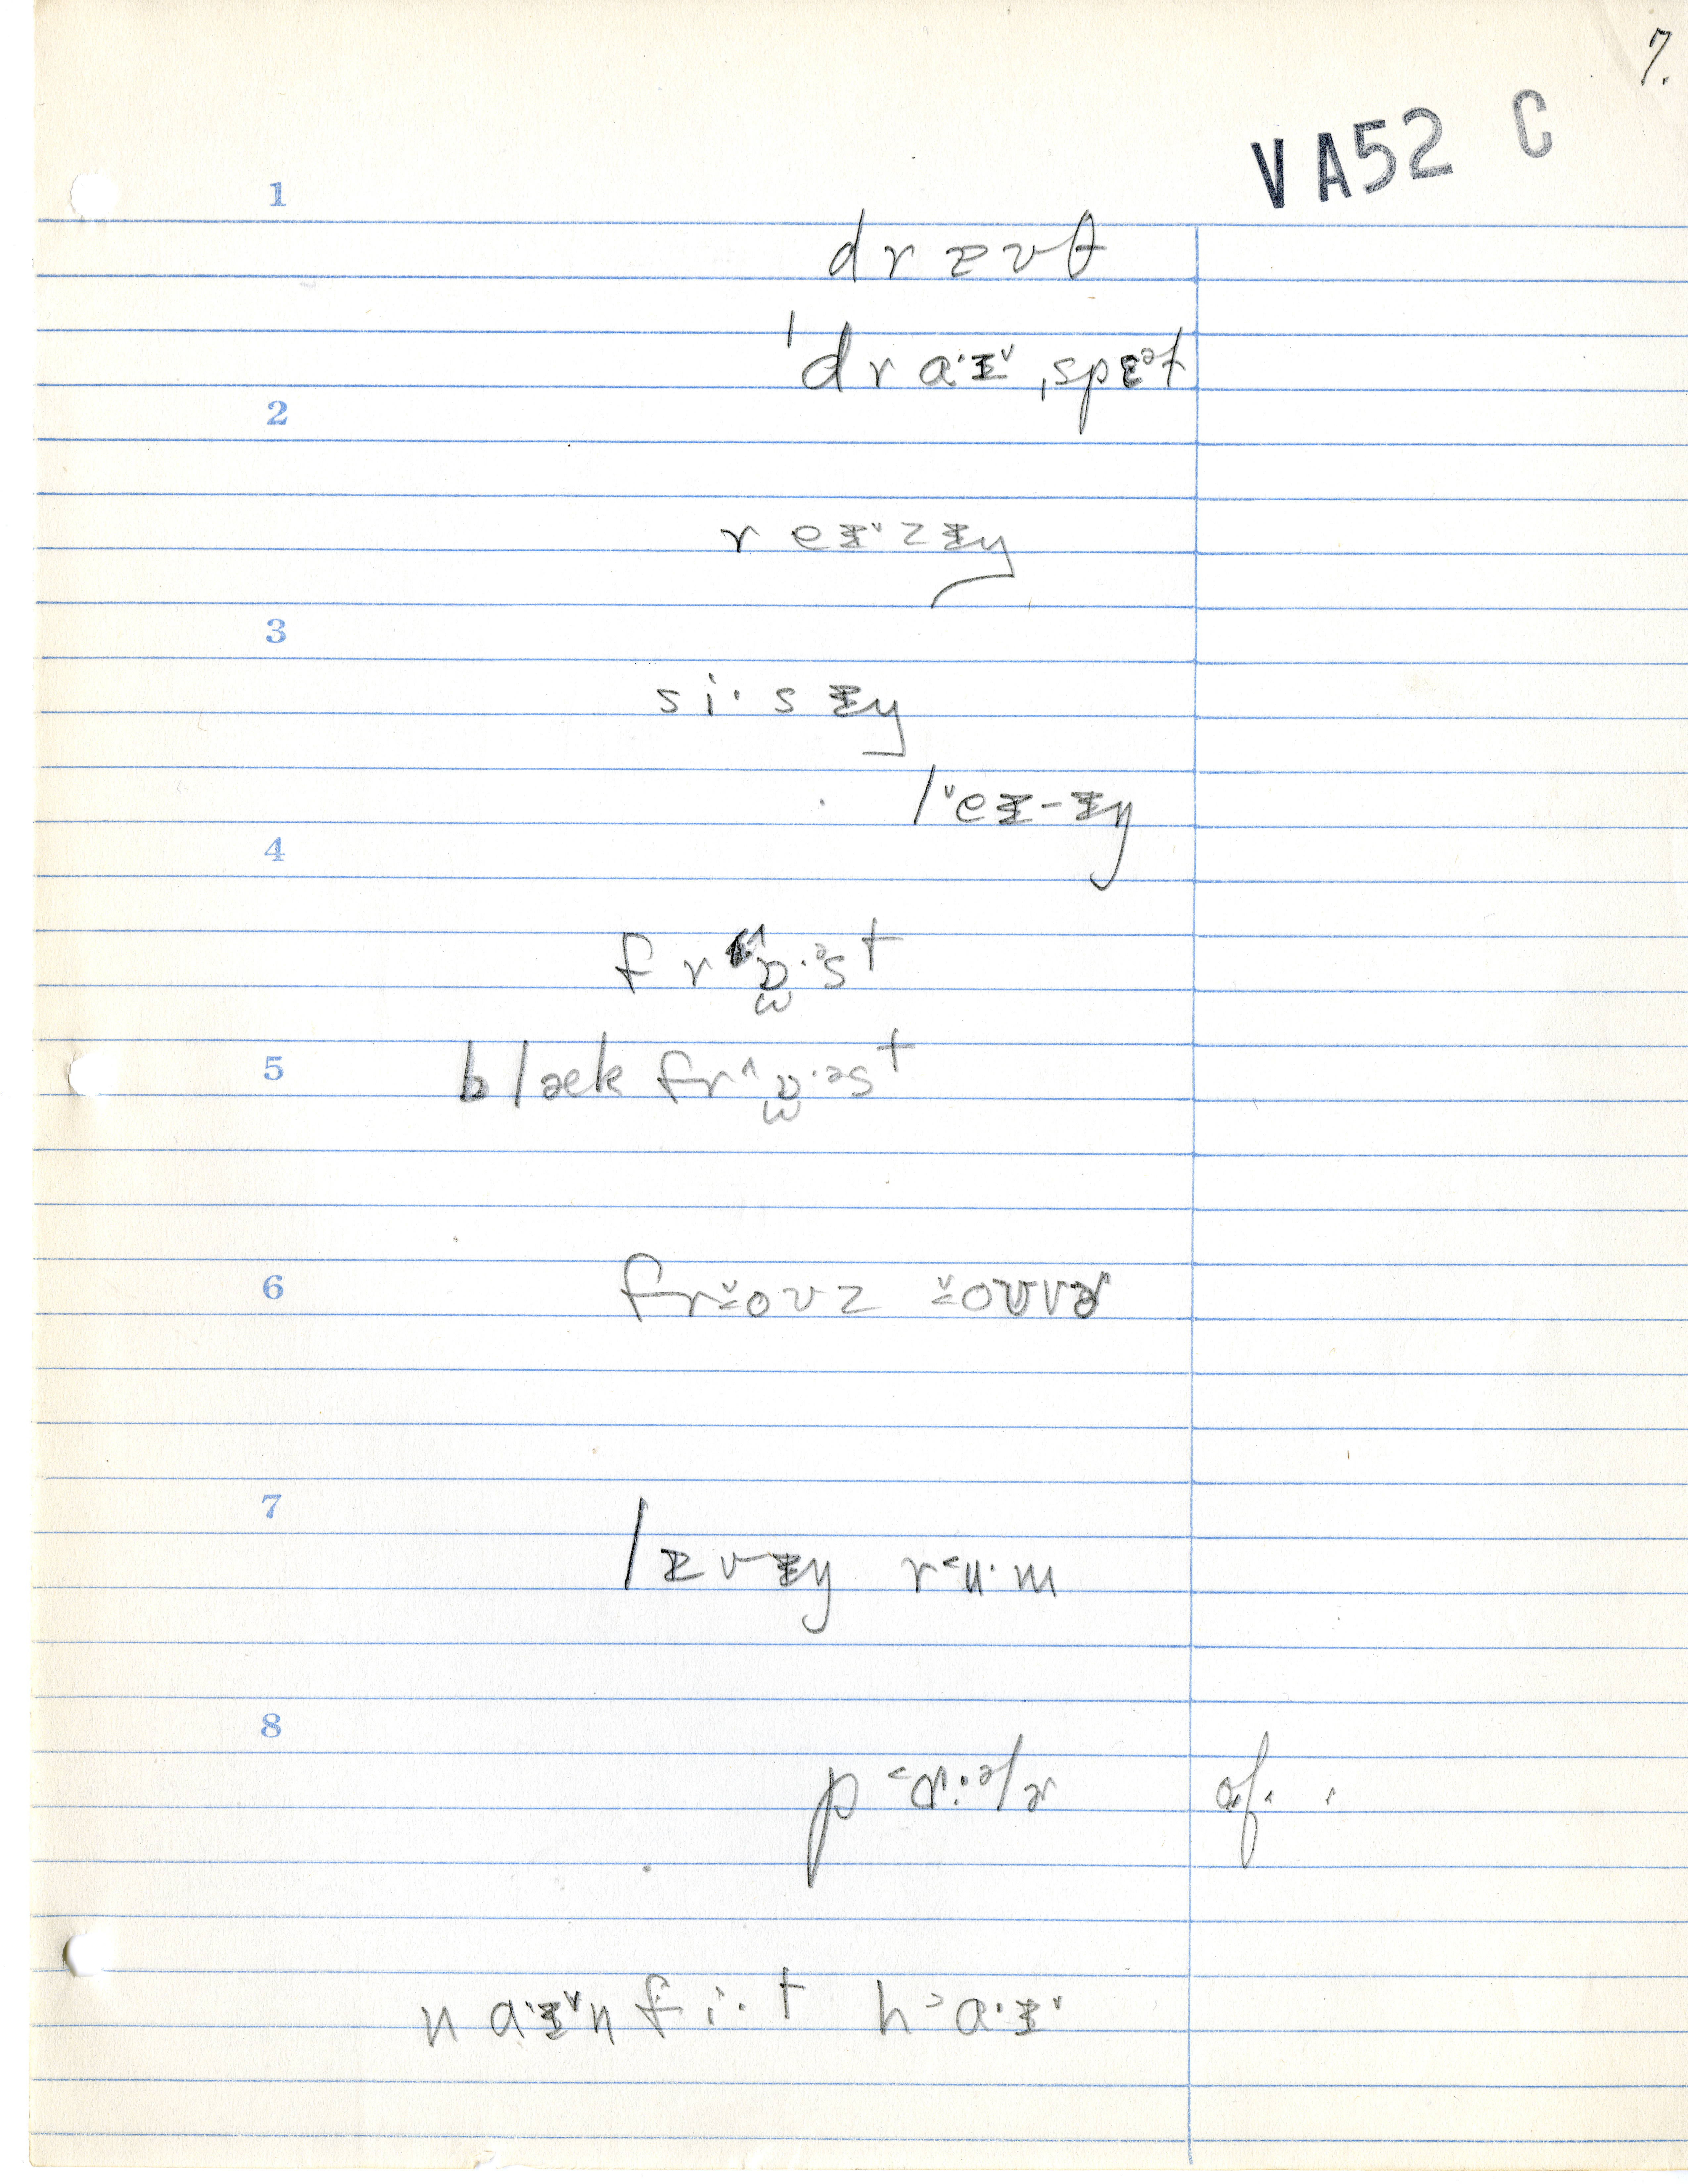 7.
VA52 C
1
d r ɪ v θ
ˈd r a·ɪ˅ ˌspɛᵊt
2
r eɪ·˅ z ɪŋ
3
s i· s ɪŋ
l ˅eɪ-ɪŋ
4
f r ˄ɒ·ᵊs t
5
b l æk f r ˄ɒ·əs t
6
f r ˅o ʊ z ˅o ʊ v ɚ
7
l ɪ v ɪŋ r ˂u· m
8
p ˂ɑ·ᵊl ɚ
n a·ɪ˅n f i· t h ˃a·ɪ˅